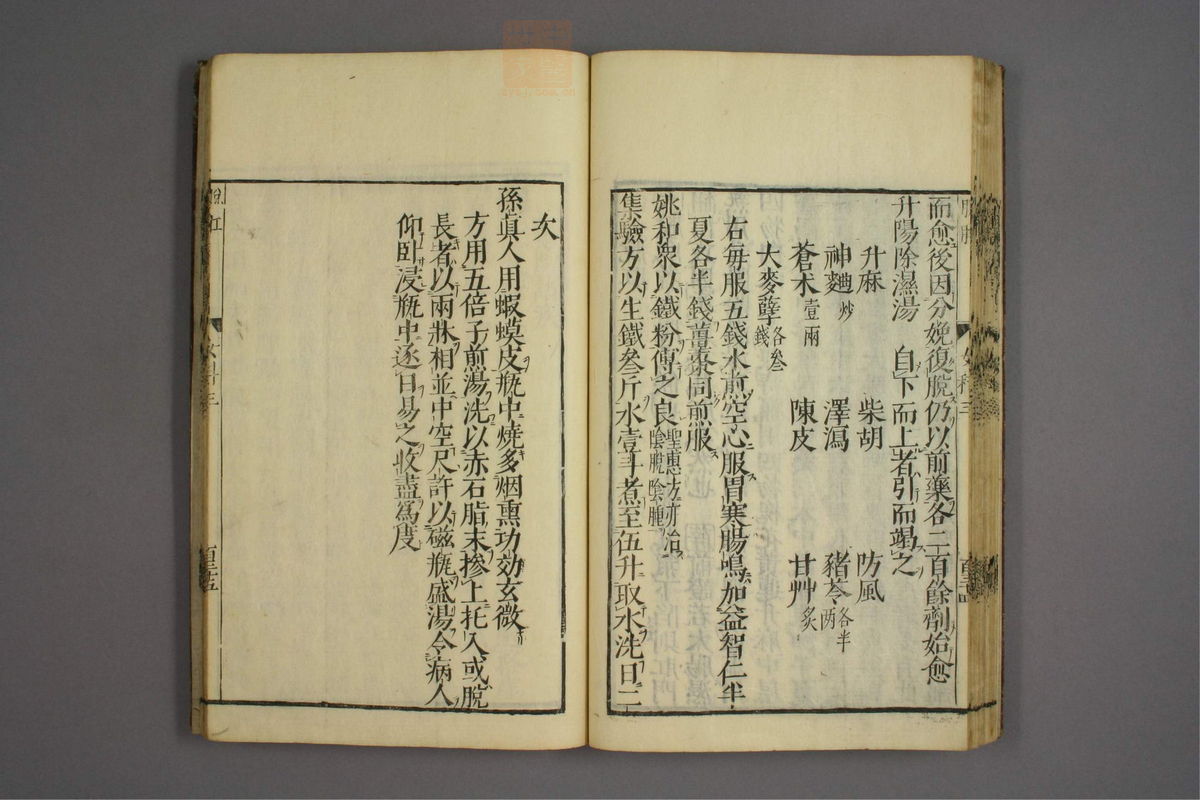 而愈後因分娩復脫仍以前藥各二百餘劑始愈
升陽除濕湯　自下而上者引而竭之
升麻　柴胡　防風
神麯炒　澤瀉　豬苓各半兩
蒼朮壹兩　陳皮　甘艸炙
大麥蘗各叁錢
右每服五錢水煎空心服胃寒腸鳴加益智仁半
夏各半錢薑棗同煎服
姚和衆以鐵粉傅之良聖惠方亦治陰脫陰腫
集驗方以生鐵叁斤水壹斗煮至伍升取水洗日二
次
孫眞人用蝦蟆皮瓶中燒多烟熏功効玄微
方用五倍子煎湯洗以赤石脂末摻上托入或脫
長者以兩牀相並中空尺許以磁瓶盛湯令病人
仰臥浸瓶中逐日易之收盡爲度